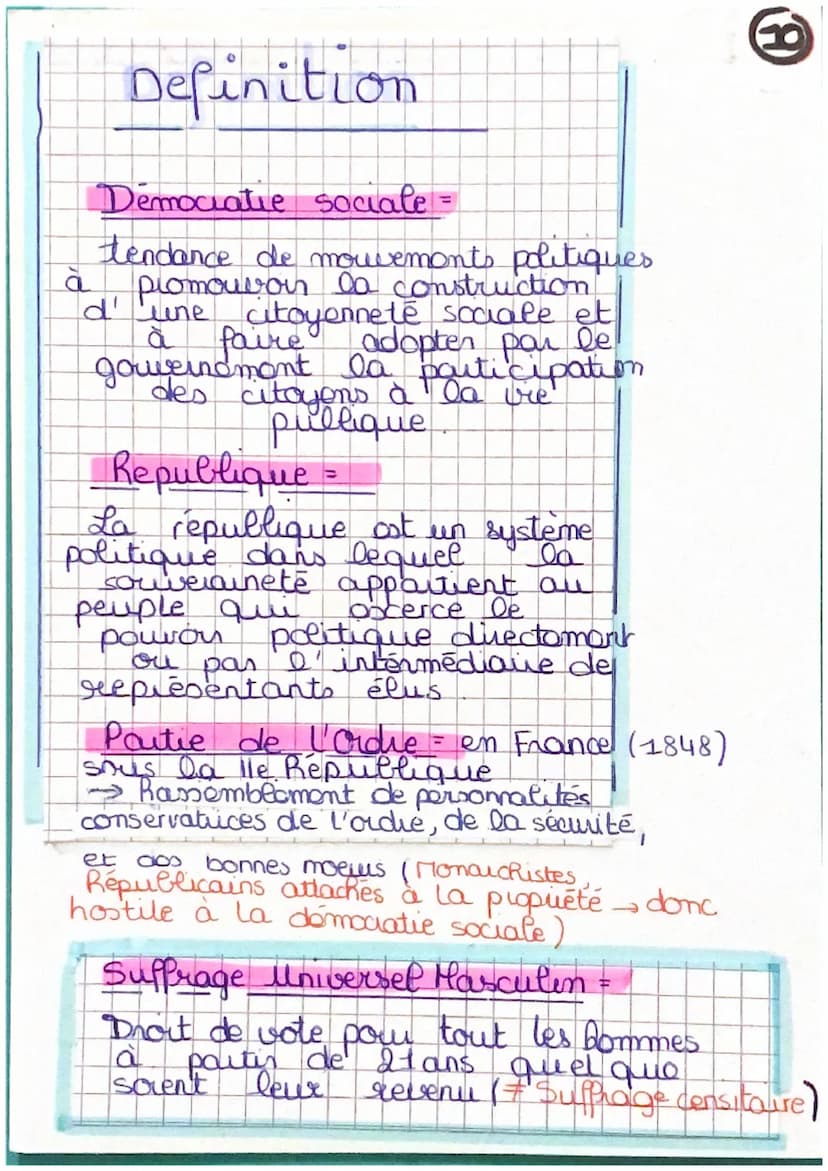 10
Definition
Démocratie sociale =
tendance de mouvements politiques
à promouvoir la construction
d'une citoyenneté sociale et
à faire adopter par le
gouvernement la participation
des citoyens à la vie
publique.
Republique =
La république est un système
politique dans lequel la
souveraineté appartient au
peuple qui exerce le
pouvoir politique directement
ou par l'intérmédiaire de
représentants élus
Partie de l'Ordre = en France (1848)
sous la IIe République
→ Rassemblement de personnalités
conservatrices de l'ordre, de la sécurité,
et des bonnes moeurs (Monarchistes,
Républicains attachés à la propriété → donc
hostile à la démocratie sociale)
Suffrage Universel Masculin =
Droit de vote pour tout les hommes
à partir de 21ans quel que
soient leur revenu (≠ Suffrage censitaire)